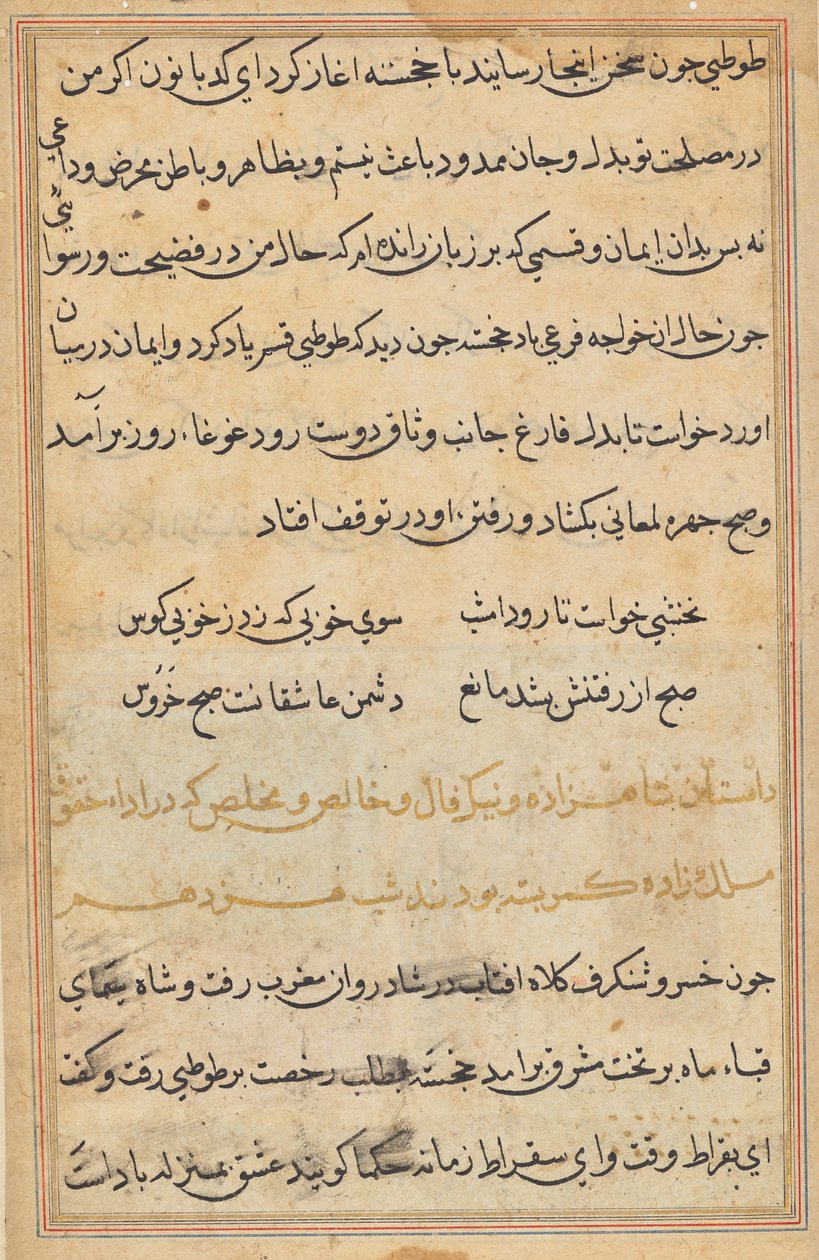 طوطي جون سخن اینجا رسایند با خجسته اغاز کرد ای کدبانون اکر من
در مصلحت تو بدل و جان ممد و باعث نیستم و بظاهر و باطن محرض و داعي
نه بس بدان ایمان و قسمي که بر زبان رانده ام که حال من در فضیحت و رسوائي
جون حال ان خواجه فرعي باد خجسته جون دید که طوطي قسم یاد کرد و ایمان در میان
اورد خواست تا بدل فارغ جانب وثاق دوست رود غوغاء روز برآمد
و صبح جهره لمعاني بکشاد و رفتن او در توقف افتاد
نخشبي خواست تا رود امشب سوي خوبي که زد ز خوبي کوس
صبح از رفتنش بشد مانع دشمن عاشقانت صبح خروس
داستان شاهزاده و نیک فال و خالص و مخلص که در اداء حقوق
ملک زاده کمر بسته بودند شب هزدهم
جون خسرو شنکرف کلاه افتاب در شادروان مغرب رفت و شاه یغماي
قباء ماه بر تخت مشرق برامد خجسته بطلب رخصت بر طوطي رفت و کفت
اي بقراط وقت و اي سقراط زمانه حکما کویند عشق بمنزله باد است